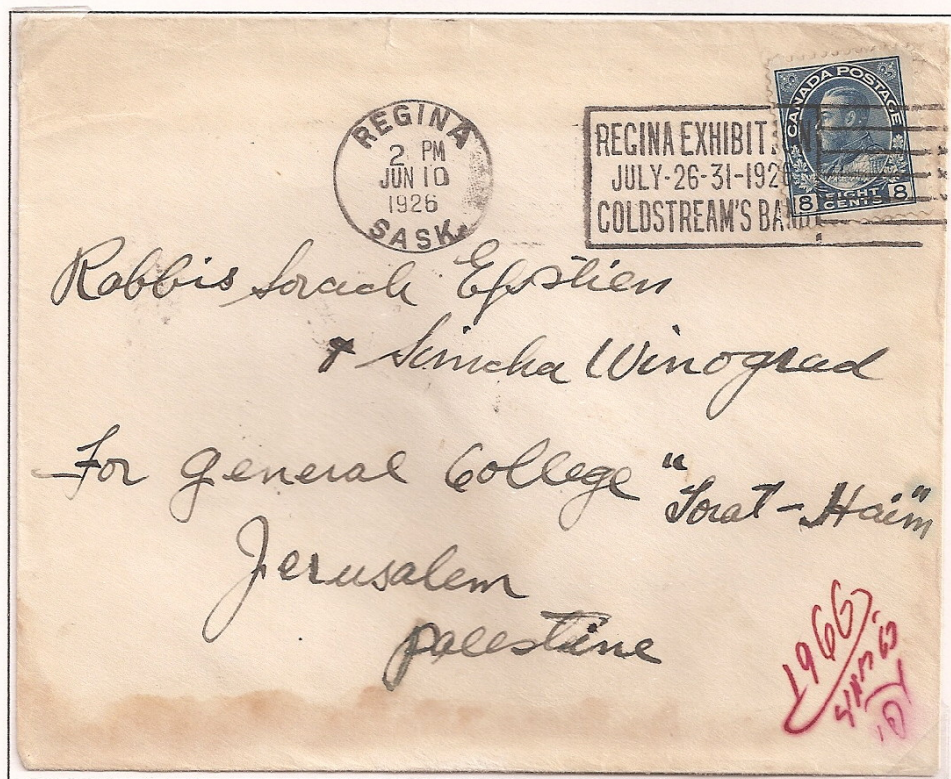 REGINA
2 PM
JUN 10
1926
SASK.
REGINA EXHIBITION
JULY-26-31-1926
COLDSTREAM'S BAND
CANADA POSTAGE
8 EIGHT CENTS 8
Rabbis Sorach Epstien
& Simcha Winograd
For General College "Torat-Haim"
Jerusalem
Palestine
1966